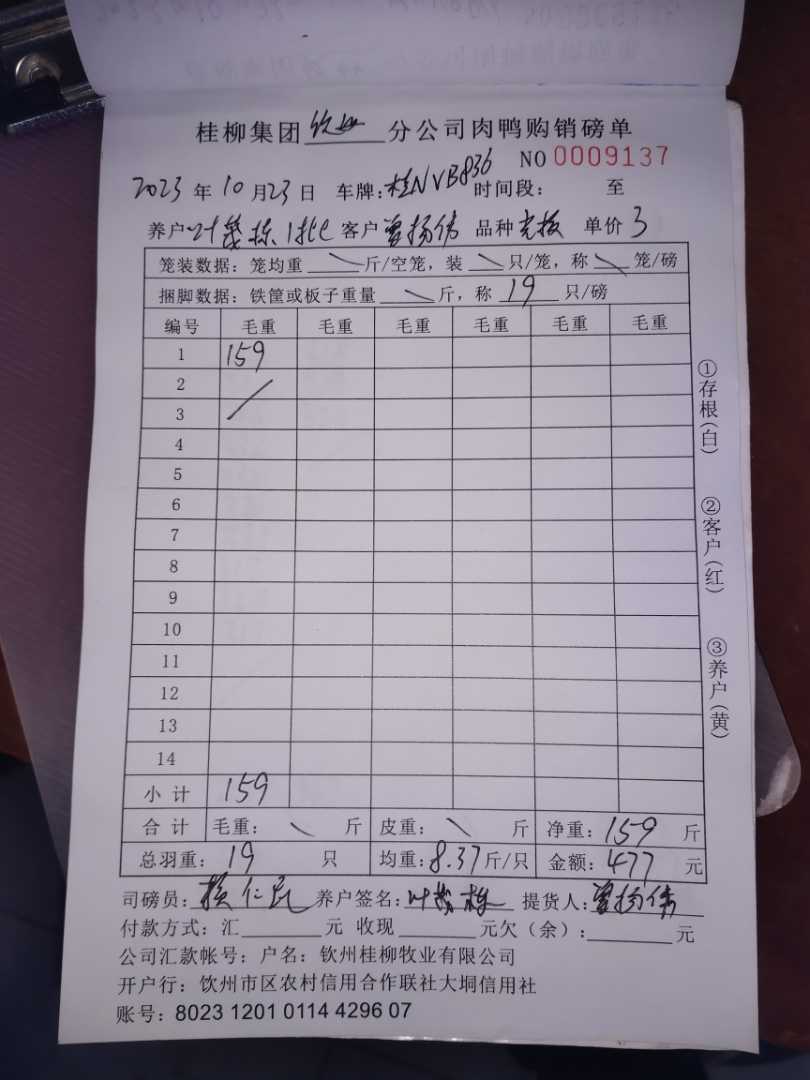 桂柳集团钦州分公司肉鸭购销磅单
NO 0009137
2023年10月23日 车牌:桂NVB836 时间段: 至
养户 叶茂栋 1批 客户 曾扬伟 品种 单价 3
笼装数据:笼均重 斤/空笼,装 只/笼,称 笼/磅
捆脚数据:铁筐或板子重量 斤,称 19 只/磅
编号 毛重 毛重 毛重 毛重 毛重 毛重
1 159
2
3
4
5
6
7
8
9
10
11
12
13
14
小计 159
合计 毛重: 斤 皮重: 斤 净重:159 斤
总羽重:19 只 均重:8.37斤/只 金额:477 元
司磅员: 养户签名:叶茂栋 提货人:曾扬伟
付款方式:汇 元 收现 元欠(余): 元
公司汇款帐号:户名:钦州桂柳牧业有限公司
开户行:钦州市区农村信用合作联社大垌信用社
账号:8023 1201 0114 4296 07
①存根(白)
②客户(红)
③养户(黄)